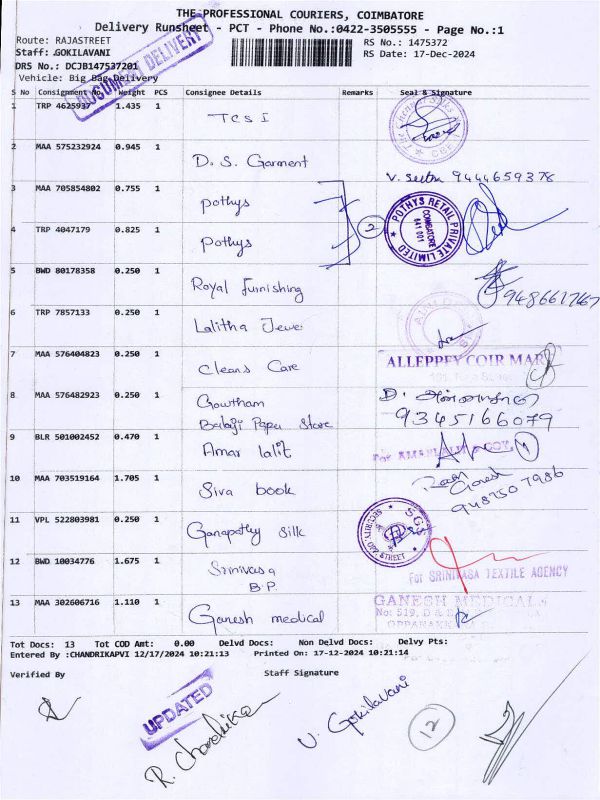 THE PROFESSIONAL COURIERS, COIMBATORE
Delivery Runsheet - PCT - Phone No.:0422-3505555 - Page No.:1
Route: RAJASTREET
RS No.: 1475372
Staff: GOKILAVANI
RS Date: 17-Dec-2024
DRS No.: DCJB147537201
Vehicle: Big Bag Delivery
DOCUMENT DELIVERY
S No Consignment No. Weight PCS Consignee Details Remarks Seal & Signature
1 TRP 4625937 1.435 1 TCS I
2 MAA 575232924 0.945 1 D. S. Garment
V. 9444659378
3 MAA 705854802 0.755 1 Pothys
POTHYS RETAIL PRIVATE LIMITED
COIMBATORE
641 001
4 TRP 4047179 0.825 1 Pothys
2
5 BWD 80178358 0.250 1 Royal furnishing
6 TRP 7857133 0.250 1 Lalitha Jewe
7 MAA 576404823 0.250 1 Cleans Care
ALLEPPEY COIR MAR
8 MAA 576482923 0.250 1 Gowtham
Balaji Paper Store
9345166079
9 BLR 501002452 0.470 1 Amar lalit
For
10 MAA 703519164 1.705 1 Siva book
Ganesh
9487507986
11 VPL 522803981 0.250 1 Ganapathy Silk
STREET
12 BWD 10034776 1.675 1 Srinivasa
B.P.
For SRINIVASA TEXTILE AGENCY
13 MAA 302606716 1.110 1 Ganesh medical
GANESH MEDICALS
No: 519, D
Tot Docs: 13 Tot COD Amt: 0.00 Delvd Docs: Non Delvd Docs: Delvy Pts:
Entered By :CHANDRIKAPVI 12/17/2024 10:21:13 Printed On: 17-12-2024 10:21:14
Verified By Staff Signature
UPDATED
R. Chandrika
V. Gokilavani
12